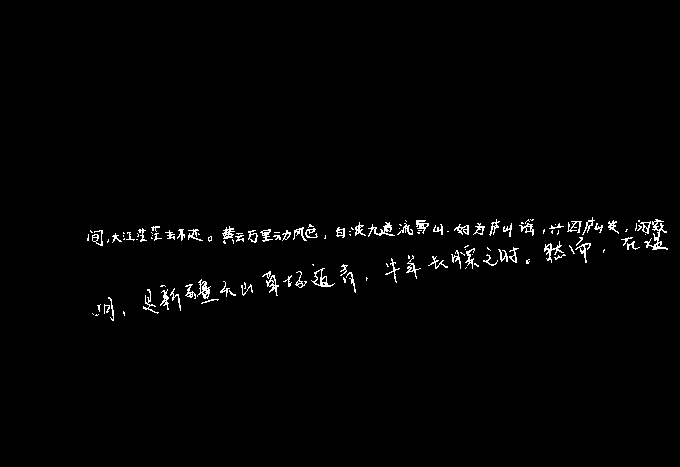 间,大江茫茫去不还。黄云万里动风色,白波九道流雪山.好为庐山谣,兴因庐山发,闲窥
月,是新疆天山草场返青,牛羊长膘之时。然而,在这